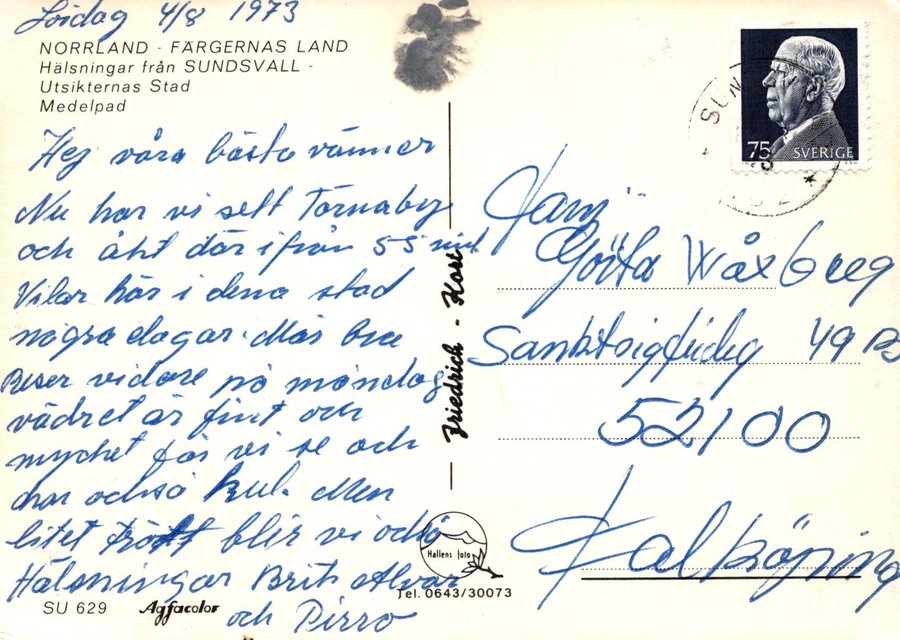 Lördag 4/8 1973
NORRLAND - FÄRGERNAS LAND
Hälsningar från SUNDSVALL -
Utsikternas Stad
Medelpad
Hej våra bästa vänner
Nu har vi sett Tärnaby
och åkt därifrån 55 mil
Vilar här i dena stad
några dagar. Mår bra
Reser vidare på måndag
vädret är fint och
mycket får vi se och
har också kul. Men
litet trött blir vi också
Hälsningar Brit Alvar
och Pirro
SU 629 Agfacolor
Friedrich - Kort
Hallens foto
Tel. 0643/30073
75 SVERIGE
SUN
Familj
Gösta Wåxberg
49 B
52100
Falköping